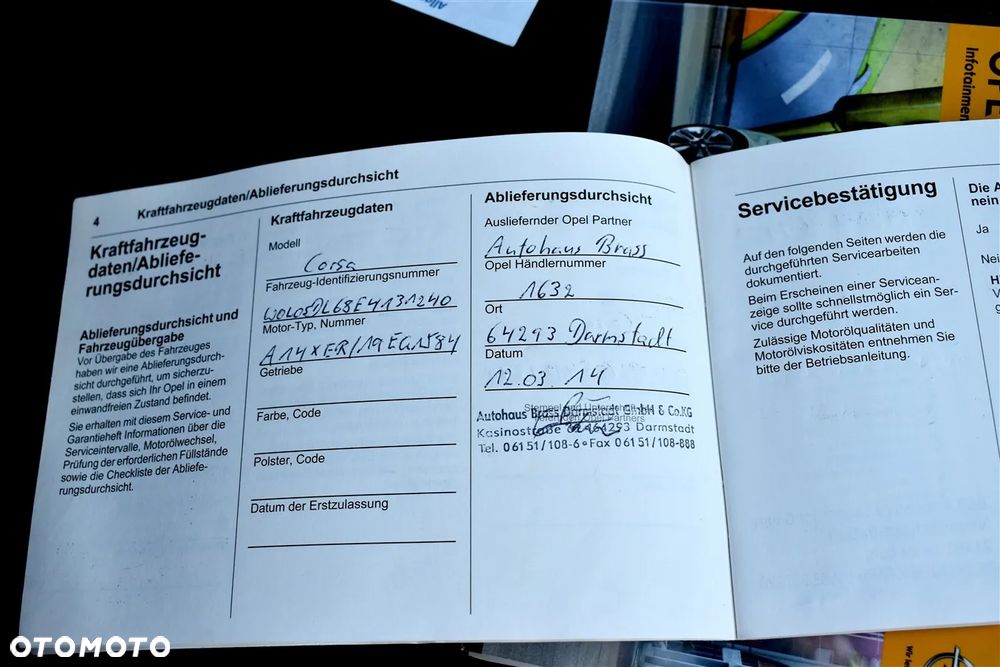 Allge
OPEL
Infotainmen
4
Kraftfahrzeugdaten/Ablieferungsdurchsicht
Kraftfahrzeug-
daten/Abliefe-
rungsdurchsicht
Ablieferungsdurchsicht und
Fahrzeugübergabe
Vor Übergabe des Fahrzeuges
haben wir eine Ablieferungsdurch-
sicht durchgeführt, um sicherzu-
stellen, dass sich Ihr Opel in einem
einwandfreien Zustand befindet.
Sie erhalten mit diesem Service- und
Garantieheft Informationen über die
Serviceintervalle, Motorölwechsel,
Prüfung der erforderlichen Füllstände
sowie die Checkliste der Abliefe-
rungsdurchsicht.
Kraftfahrzeugdaten
Modell
Corsa
Fahrzeug-Identifizierungsnummer
W0L0SDL68E4131240
Motor-Typ, Nummer
A14XER/19EG1584
Getriebe
Farbe, Code
Polster, Code
Datum der Erstzulassung
Ablieferungsdurchsicht
Ausliefernder Opel Partner
Autohaus Brass
Opel Händlernummer
1632
Ort
64293 Darmstadt
Datum
12.03 14
Autohaus Brass Darmstadt GmbH & Co.KG
Kasinostraße 64293 Darmstadt
Tel. 06151/108-6 Fax 06151/108-888
Servicebestätigung
Auf den folgenden Seiten werden die
durchgeführten Servicearbeiten
dokumentiert.
Beim Erscheinen einer Servicean-
zeige sollte schnellstmöglich ein Ser-
vice durchgeführt werden.
Zulässige Motorölqualitäten und
Motorölviskositäten entnehmen Sie
bitte der Betriebsanleitung.
Die A
nein
Ja
Nei
OTOMOTO